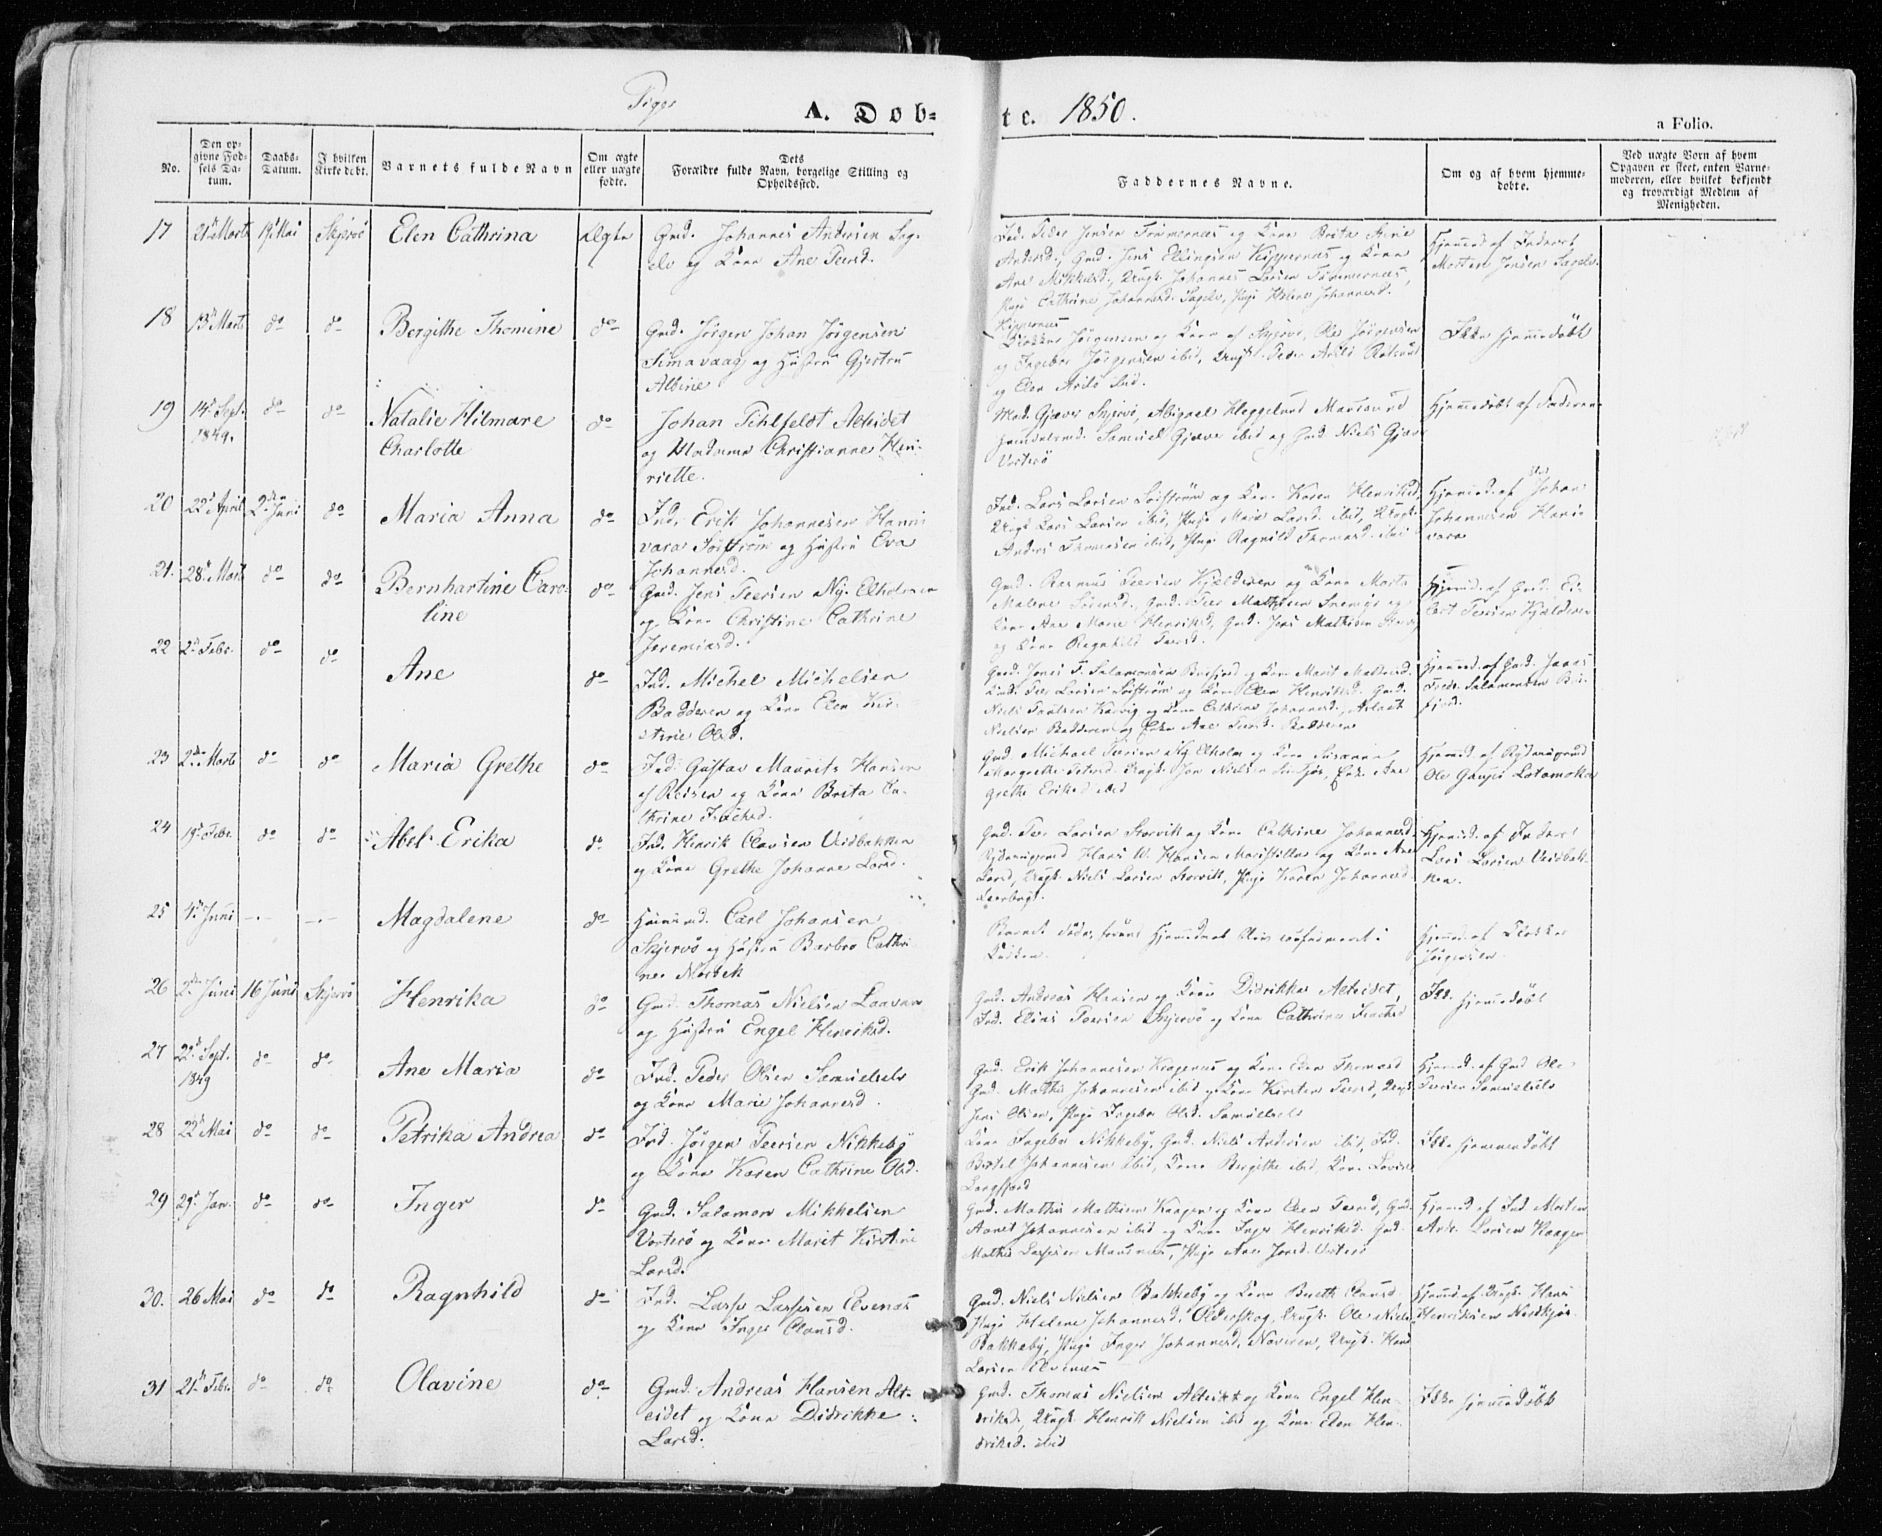 Piger
A. Døb-
te. 1850.
a Folio.
No.
Den op-
givne Fød-
sels Da-
tum.
Daabs-
Datum.
I hvilken
Kirke døbt.
Barnets fulde Navn
Om ægte
eller uægte
fødte.
Dets
Forældre fulde Navn, borgelige Stilling og
Opholdssted.
Faddernes Navne.
Om og af hvem hjemme-
døbte.
Ved uægte Børn af hvem
Opgaven er skeet, enten Barne-
moderen, eller hvilket bekjendt
og troværdigt Medlem af
Menigheden.
17 21de Marts 19 Mai Skjervø Elen Cathrina Ægte Gmd. Johannes Andersen Sag-
elv og Kone Ane Peersd.
Ane Mikkelsd., Ungk. Johannes Larsen
Pige Cathrine Johannesd. Sagelv, Pige Helene Johannesd.
Hjemmed. af Inderst
Morten Jensen Sagelv.
18 13de Marts do do Bergithe Thomine do Gmd. Jørgen Johan Jørgensen
Simavaag og Hustru Gjertru
Albine
Klokker Jørgensen og Kone af Skjervø, Ole Jørgensen
og Ingebor Jørgensen ibid, Ungk. Peder
og Elen
Ikke hjemmedøbt
19 14de Sept. 1849. do do Natalie Hilmare
Charlotte do Johan Fihlfeldt Alteidet
og Madame Christianne Hen-
riette.
Mad. Gjæver Skjervø, Abigael Heggelund Maursund
Handelsmd. Samuel Gjæver ibid og Gmd. Niels Gjæver
Vorterø
Hjemmedøbt af Faderen
20 22de April 2den Juni do Maria Anna do Indr. Erik Johannesen Hanni-
vara Søstrøm og Hustru Eva
Johannesd.
Ind. Lars Larsen Søstrøm og Kone Karen Henriksd.
Ungk. Lars Larsen ibid, Pige Marie Larsd. ibid, Ungk.
Anders Thomasen ibid, Pige Ragnild Thomasd. ibid
Hjemmed. af Johan
Johannesen Hani-
vara
21. 28de Marts do do Bernhartine Caro-
line do Gmd. Jens Peersen Ny. Elholmen
og Kone Christine Cathrine
Jeremiasd.
Gmd. Rasmus Peersen Kjælderen og Kone Marte
Malene Sørensd. Gmd. Peer Mathisen
Kone Ane Marie Henriksd, Gmd. Jens Mathisen
og Kone Ragnhild Peersd.
Hjemmed. af Gmd. Ei-
lert Peersen Kjælderen
22 2de Febr. do do Ane do Ind. Michel Michelsen
Badderen og Kone Elen Kir-
stine Olsd.
Gmd. Jonas F. Salamonsen Burfjord og Kone Marit
Gmd. Peer Larsen Søstrøm og Kone Elen Henriksd. Gmd.
Niels Paulsen Karvig og Kone Cathrine Johannesd.,
Nielsen Badderen og Ane Peersd. Badderen
Hjemmed. af Gmd. Jonas
Fredr. Salamonsen Bur-
fjord.
23 2den Marts do do Maria Grethe do Ind. Gustav Maurits Hansen
af Reisen og Kone Brita Ca-
thrine
Gmd. Michael Peersen Ny Elholm og Kone Susanna
Margrethe Petersd. Ungk. Jon Nielsen
Grethe Eriksd. ibid
Hjemmed. af Rydningsmd.
Ole Lotamoka
24 19de Febr. do do Abel Erika do Ind. Henrik Clausen Veidbakken
og Kone Grethe Johanne Larsd.
Gmd. Peer Larsen Storvik og Kone Cathrine Johannesd.
Rydningsmd Hans N. Hansen og Kone Ane
Larsd, Ungk. Niels Larsen Storvik, Pige Karen Johannesd.
Hjemmed. af Inderst
Lars Larsen Veidbak-
ken.
25 4de Juni -.- -.- Magdalene do Huusmd. Carl Johansen
Skjervø og Hustru Barbro Cathri-
ne
Barnet døde, førend Hjemmedaab blev confirmeret i
Kirken.
Hjemmed. af Klokker
Jørgensen.
26 2den Juni 16 Juni Skjervø Henrika do Gmd. Thomas Nielsen
og Hustru Engel Henriksd.
Gmd. Andreas Hansen og Kone Didrikke Alteidet,
Ind. Elias Peersen Skjervø og Kone Cathrine
Ikke hjemmedøbt
27 22de Sept. 1849 do do Ane Maria do Ind. Peder Olsen Samuelselv
og Kone Marie Johannesd.
Gmd. Erik Johannesen og Kone Elen Thomasd
Gmd. Mathis Johannesen ibid og Kone Kirsten Peersd, Ungk.
Jens Olsen, Pige Ingebor Olsd. Samuelselv
Hjemmed. af Gmd Ole
Peersen Samuelselv
28 22de Mai do do Petrika Andrea do Ind. Jørgen Peersen Nikkeby
og Kone Karen Cathrine Olsd.
Kone Ingebor Nikkeby, Gmd. Niels Andersen ibid, Ind.
Bertel Johannesen ibid, Kone Bergithe ibid, Kone Lovise
Langfjord
Ikke hjemmedøbt
29 29de Jan. do do Inger do Gmd. Salamon Mikkelsen
Vorterø og Kone Marit Kirstine
Larsd.
Gmd. Mathis Mathisen Kaagen og Kone Elen Peersd, Gmd
Johannesen ibid og Kone Inger Henriksd. Gmd.
Mathis Larsen Maursund, Pige Ane Jonsd. Vorterø
Hjemmed. af Ind Morten
Andr. Larsen Kaagen
30. 26 Mai do do Ragnhild do Ind. Lars Larsen Avenæs
og Kone Inger Clausd.
Gmd. Niels Nielsen Bakkeby og Kone Berith Clausd.
Pige Helene Johannesd, Olderskog, Ungk. Ole Niels.
Bakkeby, Pige Inger Johannesd, Naveren, Ungk. Hans
Larsen Avenæs
Hjemmed. af Ungk. Hans
Henriksen
31 21de Febr. do do Olavine do Gmd. Andreas Hansen Alt-
eidet og Kone Didrikke
Larsd.
Gmd. Thomas Nielsen Alteidet og Kone Engel Hen-
driksd, Ungk. Henrik Nielsen ibid og Kone Elen Hen-
driksd. ibid
Ikke hjemmedøbt